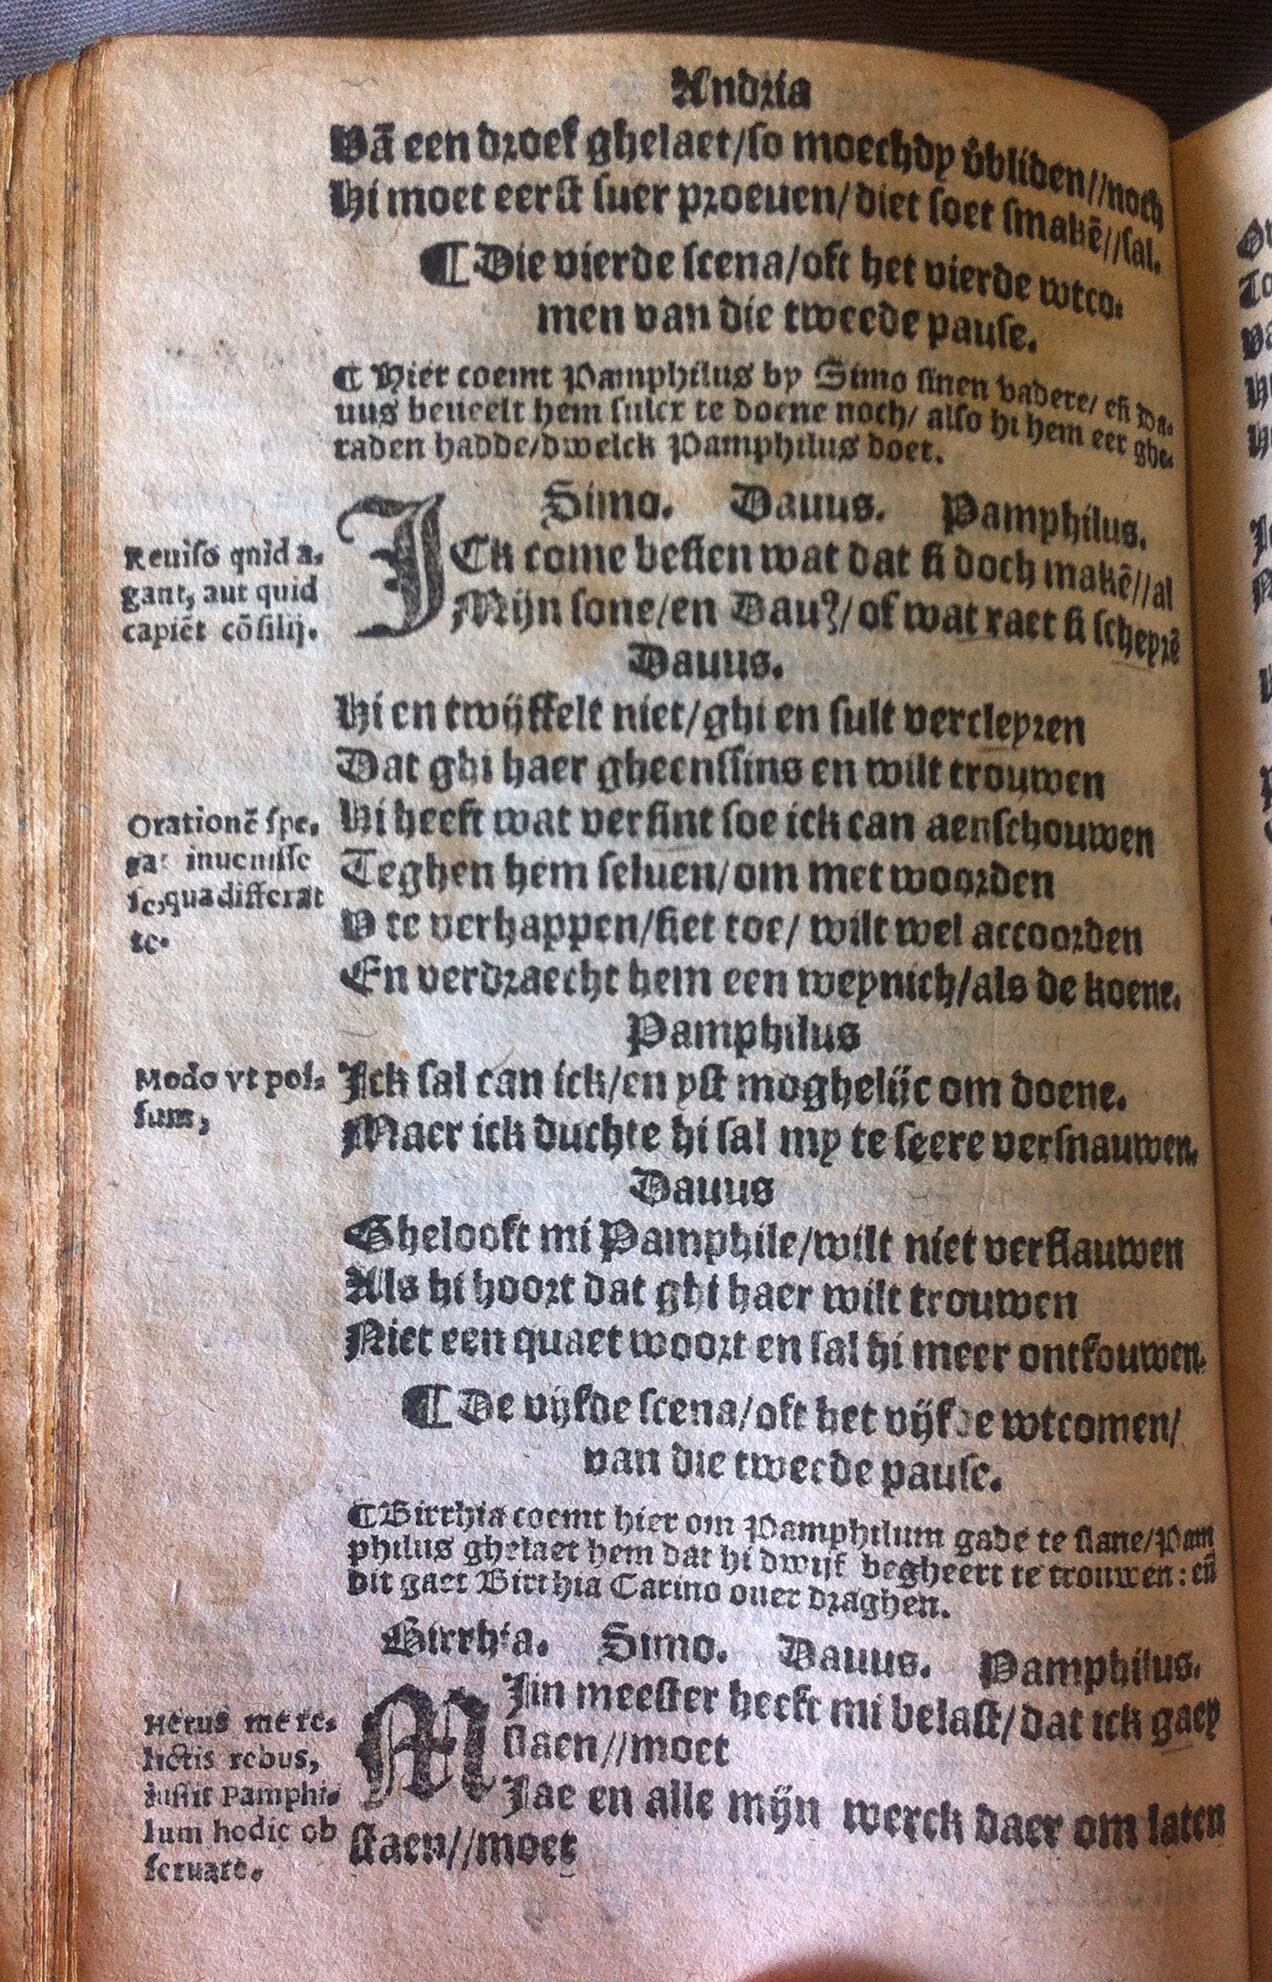 Andria
Vā een droef ghelaet/so moechdy v̂bliden//noch
Hi moet eerst suer proeuen/diet soet smakē//sal.
¶ Die vierde scena/oft het vierde wtco-
men van die tweede pause.
¶ Hier coemt Pamphilus by Simo sinen vadere/ en̄ Da-
uus beueelt hem sulcx te doene noch/ also hi hem eer ghe-
raden hadde/dwelck Pamphilus doet.
Simo. Dauus. Pamphilus.
Reuiso quid a-
gant, aut quid
capiēt cōsilij.
ICk come besien wat dat si doch makē//al
Mijn sone/en Dauꝰ/of wat raet si scheprē
Dauus.
Hi en twijffelt niet/ghi en sult vercleyren
Dat ghi haer gheenssins en wilt trouwen
Orationē spe-
rat inuenisse
se,qua differat
te.
Hi heeft wat versint soe ick can aenschouwen
Teghen hem seluen/om met woorden
V te verhappen/siet toe/ wilt wel accoorden
En verdraecht hem een weynich/als de koene.
Pamphilus
Modo vt pos-
sum,
Ick sal can ick/en yst moghelijc om doene.
Maer ick duchte hi sal my te seere versnauwen.
Dauus
Ghelooft mi Pamphile/wilt niet verflauwen
Als hi hoort dat ghi haer wilt trouwen
Niet een quaet woort en sal hi meer ontfouwen.
¶ De vijfde scena/oft het vijfde wtcomen/
van die tweede pause.
¶ Birrhia coemt hier om Pamphilum gade te slane/Pam
philus ghelaet hem dat hi dwijf begheert te trouwen: en̄
dit gaet Birrhia Carino ouer draghen.
Birrhia. Simo. Dauus. Pamphilus.
Herus me re-
lictis rebus,
iussit Pamphi-
lum hodie ob
seruare.
MIin meester heeft mi belast/dat ick gaey
slaen//moet
Jae en alle mijn werck daer om laten
staen//moet